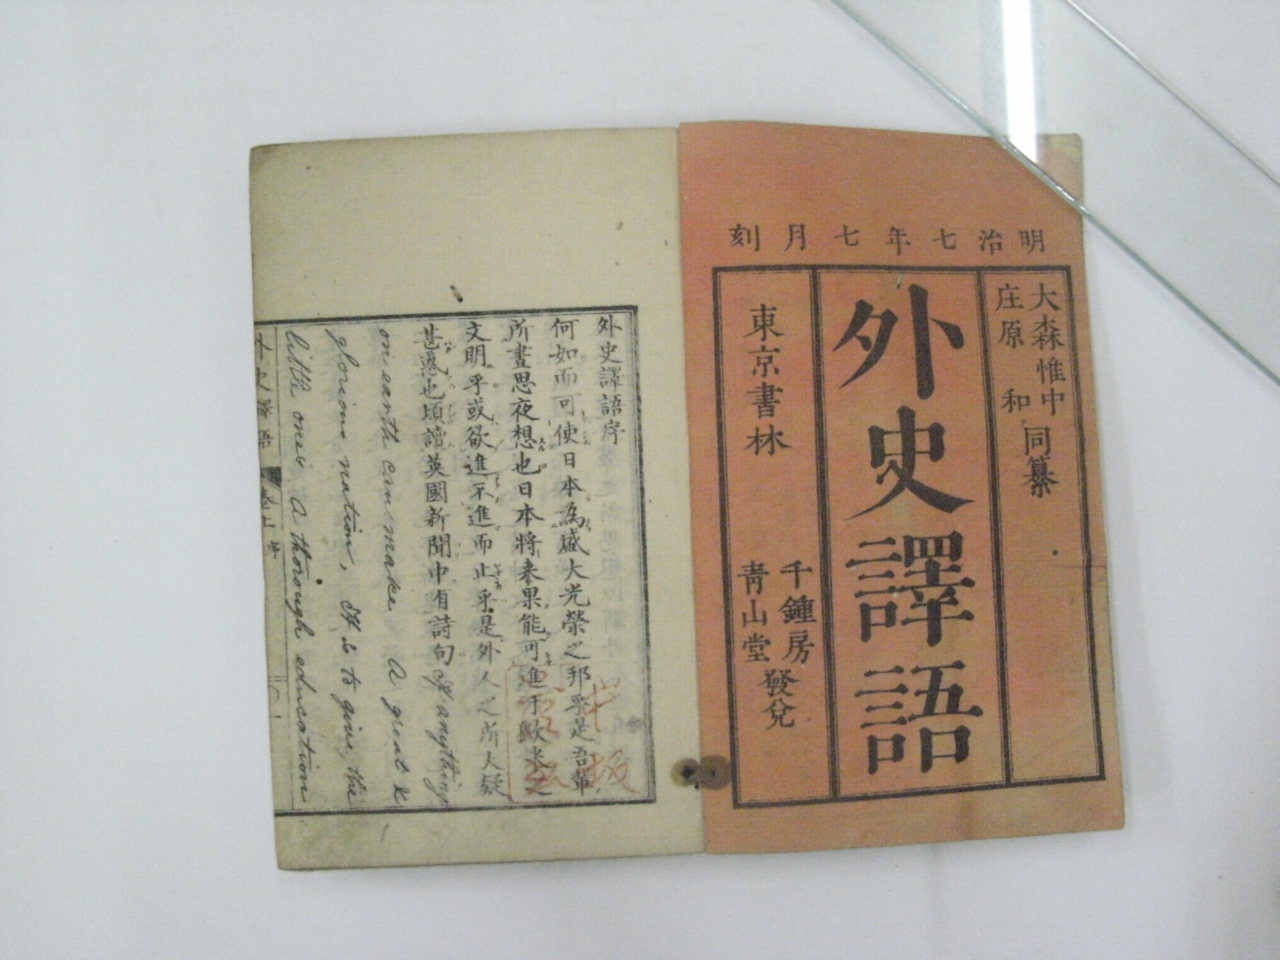 明治七年七月刻
大森惟中
庄原和
同纂
外史譯語
東京書林
千鍾房
青山堂
發兌
外史譯語序
何如而可使日本為盛大光榮之邦乎是吾輩
所晝思夜想也日本將来果能可進乎歐米之
文明乎或欲進不進而止乎是外人之所大疑
甚惑也頃讀英國新聞中有詩句 If anything
on earth can make A great &
glorious nation, It is to give, the
little ones A thorough education
外史譯語 卷上 序